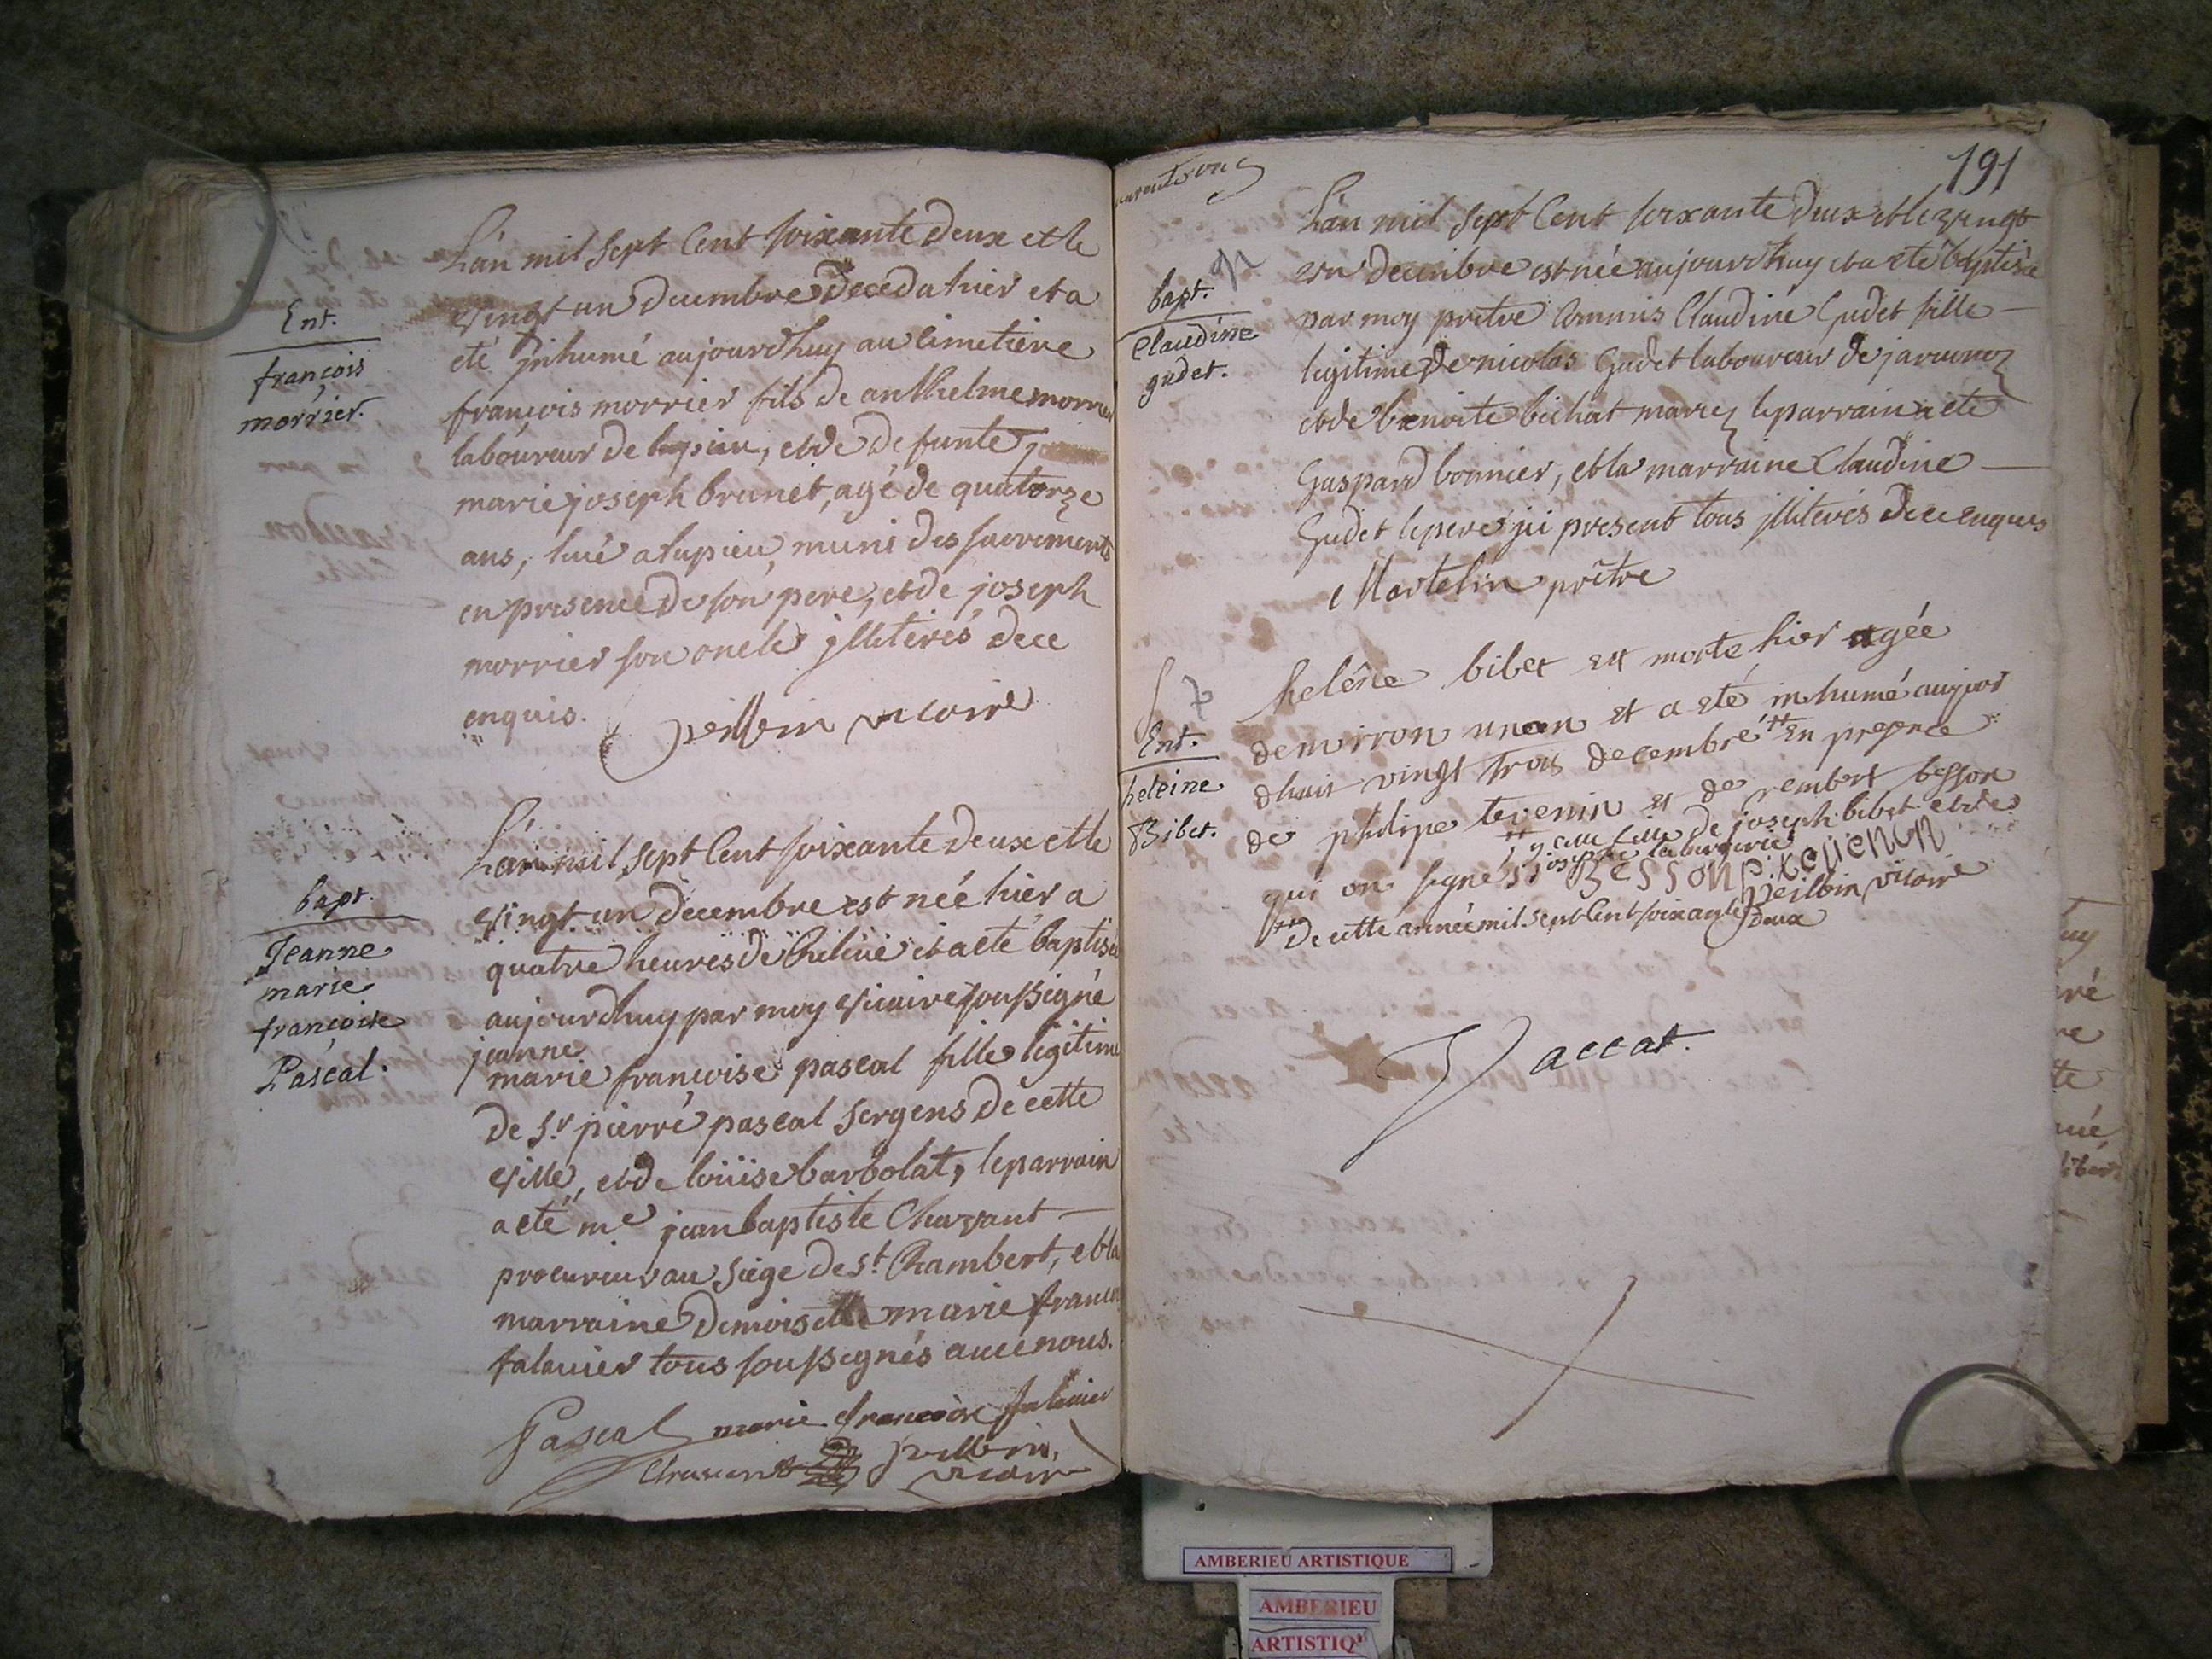 Ent.
françois
morrier.
L'an mil sept Cent soixante deux et le
vingt un decembre deceda hier et a
eté jnhumé aujourdhuy au Cimetiere
françois morrier fils de anthelme morrier
laboureur de lupieu, et de defunte
marie joseph brunet, agé de quatorze
ans, tué a lupieu, muni des sacrements
en presence de son pere, et de joseph
morrier son oncle jlliterés de ce
enquis. peillbin vicaire
bapt.
Jeanne
marie
françoise
Pascal.
L'an mil sept Cent soixante deux et le
vingt un decembre est née hier a
quatre heures de et a eté baptisée
aujourdhuy par moy vicaire soussigné
jeanne
marie francoise pascal fille legitime
de Sr. pierre pascal sergens de cette
ville, et de loüise barbolat, le parrain
a eté me. jean baptiste Charvant
procureur au siege de st. Rambert, et la
marraine Demoiselle marie
falavier tous soussignés avec nous.
Pascal marie francoise falavier
peillbin
vicaire
191
bapt.
Claudine
gudet.
L'an mil sept Cent soixante deux et le vingt
un decembre est née aujourdhuy et a eté baptisée
par moy prêtre Commis Claudine Gudet fille
legitime de nicolas Gudet laboureur de javornoz
et de benoite bichat mariez le parrain a eté
Gaspard bonnier, et la marraine Claudine
Gudet le pere ji present tous jlliterés de ce enquis
Martelin prêtre
Ent.
heleine
Bibet.
helêne bibet est morte hier agée
demirron un an et a eté inhumé aujour
dhuis vingt trois decembre ++ En presence
de philipe tevenin et de rembert besson
fille de joseph bibet et de
qui on signe Besson p. tevenon
peilbin vicaire
++ De cette année mil sept Cent soixante deux
Vaccat.
AMBERIEU ARTISTIQUE
AMBERIEU
ARTISTIQ